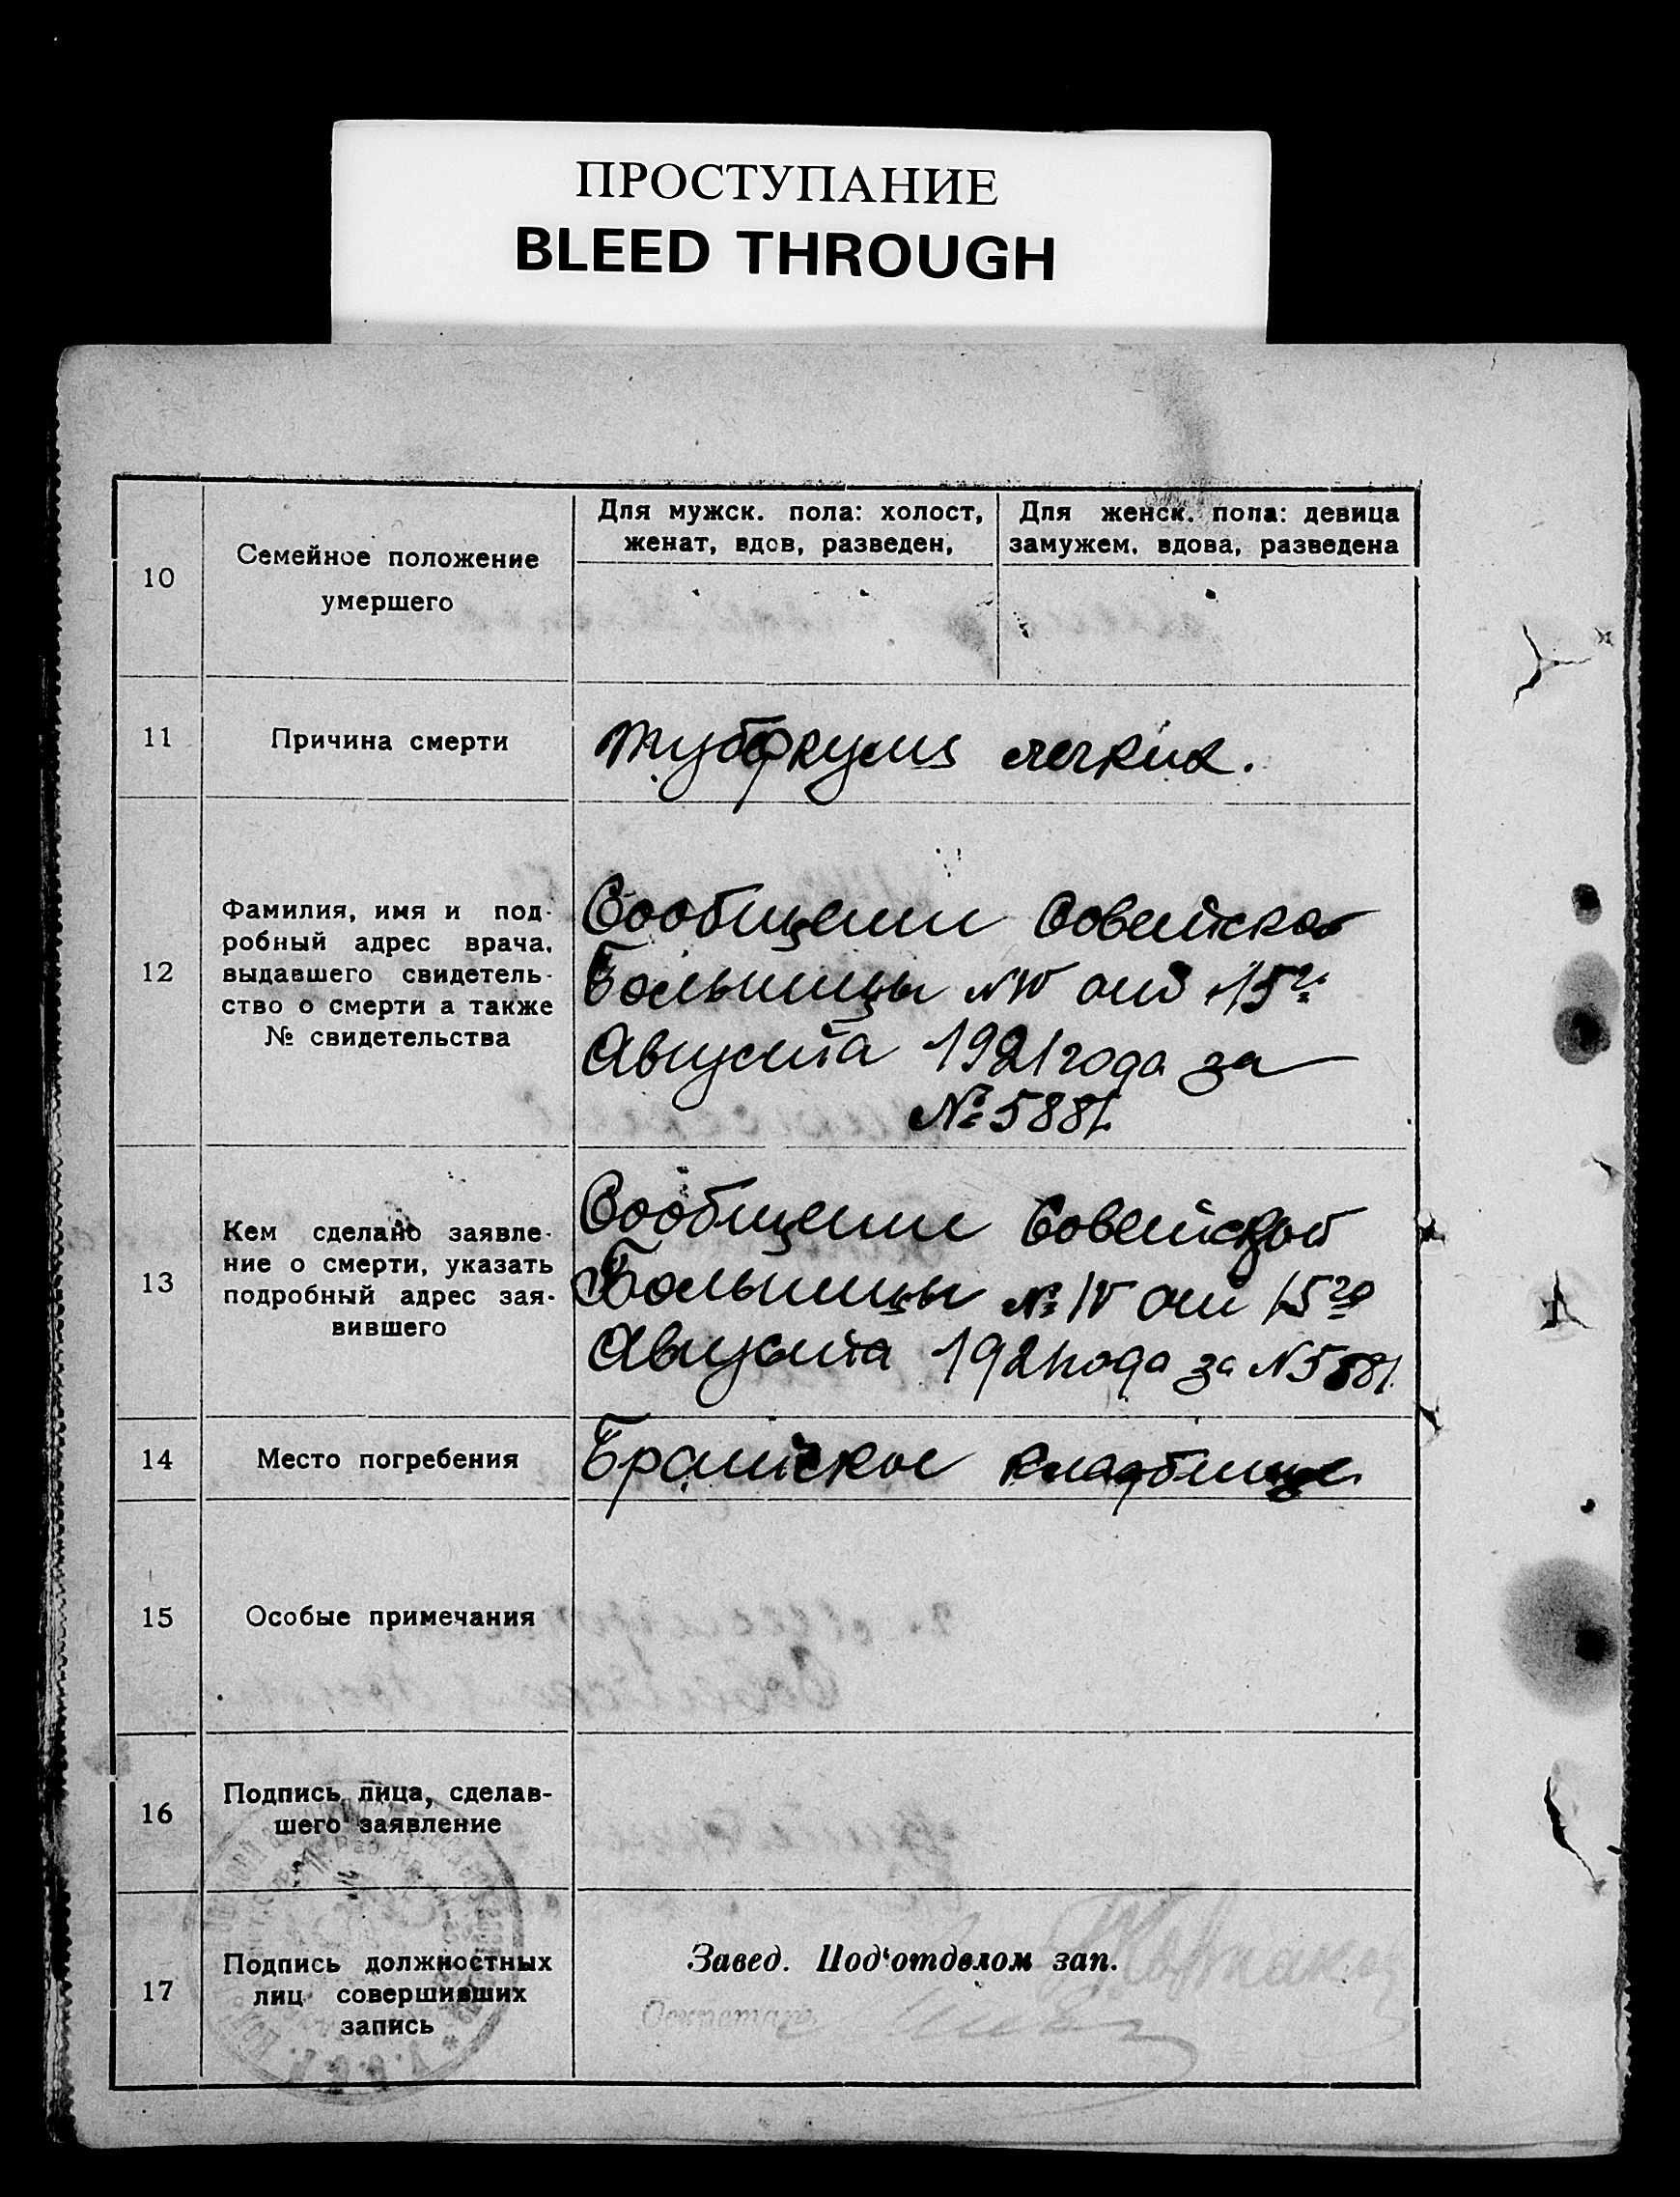 ПРОСТУПАНИЕ
BLEED THROUGH
10
Семейное положение
умершего
Для мужск. пола: холост,
женат, вдов, разведен,
Для женск. пола: девица
замужем, вдова, разведена
11
Причина смерти
туберкулез легких.
12
Фамилия, имя и под-
робный адрес врача,
выдавшего свидетель-
ство о смерти а также
№ свидетельства
Сообщение Советской
Больницы № IV от 15го
Августа 1921 года за
№ 5881.
13
Кем сделано заявле-
ние о смерти, указать
подробный адрес зая-
вившего
Сообщение Советской
Больницы № IV от 15го
Августа 1921 года за № 5881.
14
Место погребения
Братское кладбище
15
Особые примечания
16
Подпись лица, сделав-
шего заявление
17
Подпись должностных
лиц совершивших
запись
Завед. Под'отделом зап.
Секретарь